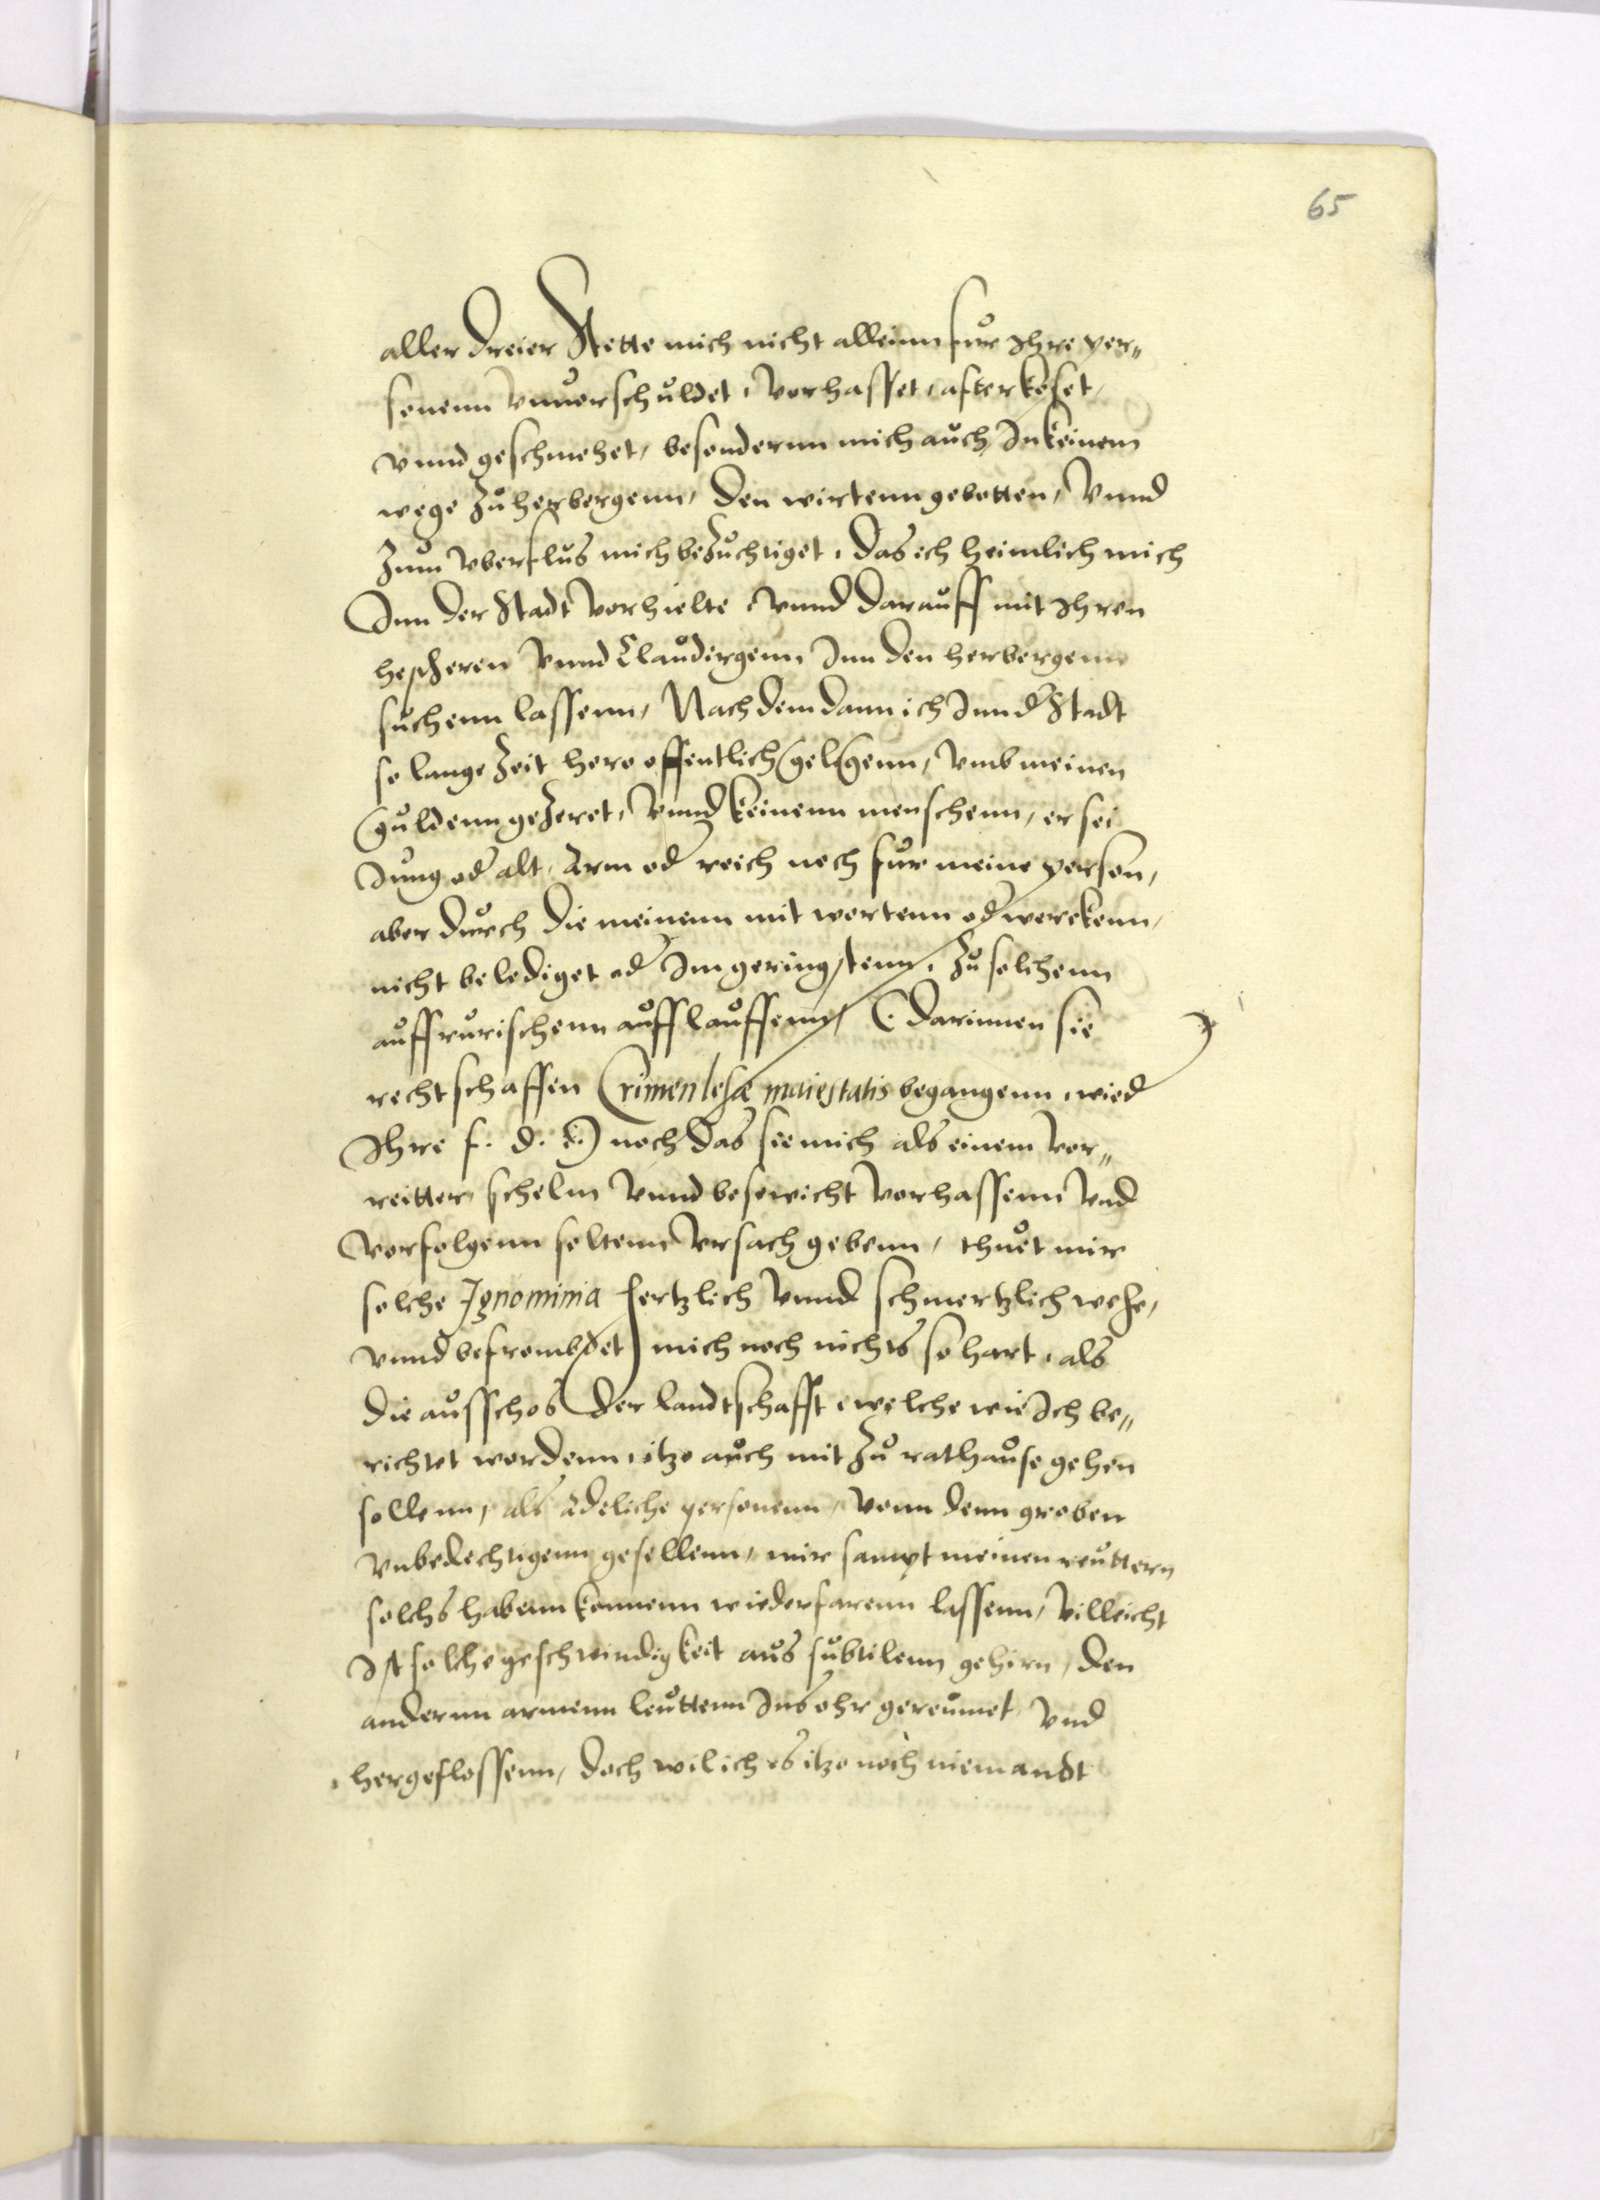 65
aller dreier Stette mich nicht alleinn fur Ihre per„
sonenn vnuerschuldet, vorhasset, afterkoset,
vnnd geschmehet, besondernn mich auch In keinem
wege zu herbergenn, den wirtenn gebotten, vnnd
zum vberflus mich bezuchtiget, das ich heimlich mich
Inn der Stadt vorhielte, vnnd darauff mit Ihren
vnnd Inn den herbergenn
suchenn lassenn, Nach dem dann ich Inn der Stadt
so lange Zeit hero offentlich gelegenn, vmb meinen
guldenn gezeret, vnnd keinenn menschenn, er sei
Jung oder alt, Arm oder reich noch fur meine person,
aber durch die meinenn mit wortenn oder werckenn,
nicht belediget oder Im geringstenn, zu solchenn
auffrurischenn aufflauffenn, (darinnen sie
rechtschaffen Crimen lesæ maiestatis begangenn, wieder
Ihre f. d. ) noch das sie mich als einem vor„
reitter, schelm vnnd bosewicht vorhassenn vnd
vorfolgenn soltenn vrsach gebenn, thuet mir
solche Ignominia hertzlich vnnd schmertzlich wehe,
vnnd befrombdet mich noch nichts so hart, als
die ausschos der landtschafft, welche wie Ich be„
richtet wordenn, itzo auch mit zu rathause gehen
sollenn, als Adeliche personenn, vonn denn groben
vnbedechtigenn gesellenn, mir sampt meinen reuttern
solchs habenn konnenn wiederfarenn lassenn, villeicht
Ist solche geschwindigkeit aus subtilenn gehirn, den
andernn armenn leuttenn Ins ohr gereumet vnd
hergeflossenn, doch wil ich es itzo noch niemandt